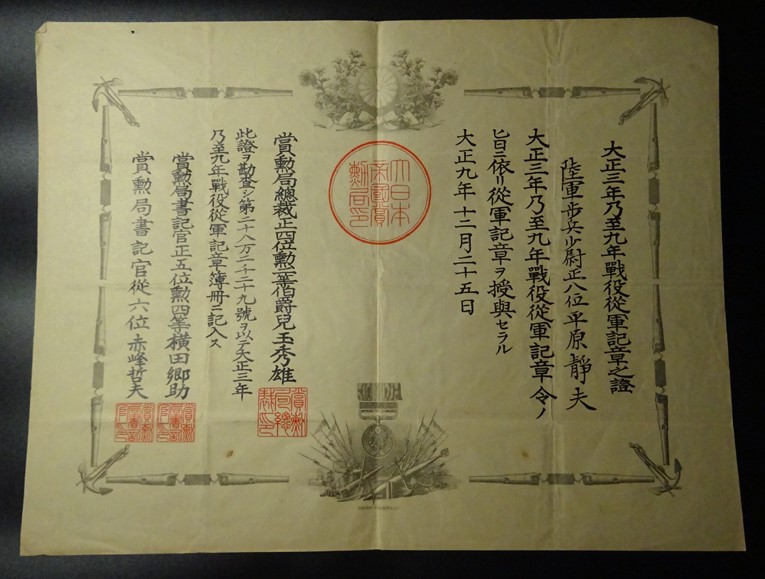 大正三年乃至九年戰役從軍記章之證
陸軍步兵少尉正八位平原靜夫
大正三年乃至九年戰役從軍記章令ノ
旨ニ依リ從軍記章ヲ授與セラル
大正九年十二月二十五日
大日本
帝國賞
勳局印
賞勳局總裁正四位勳一等伯爵兒玉秀雄
此證ヲ勘査シ第二十八万二千二十九號ヲ以テ大正三年
乃至九年戰役從軍記章簿冊ニ記入ス
賞勳局書記官正五位勳四等橫田鄉助
賞勳局書記官從六位赤峰哲夫